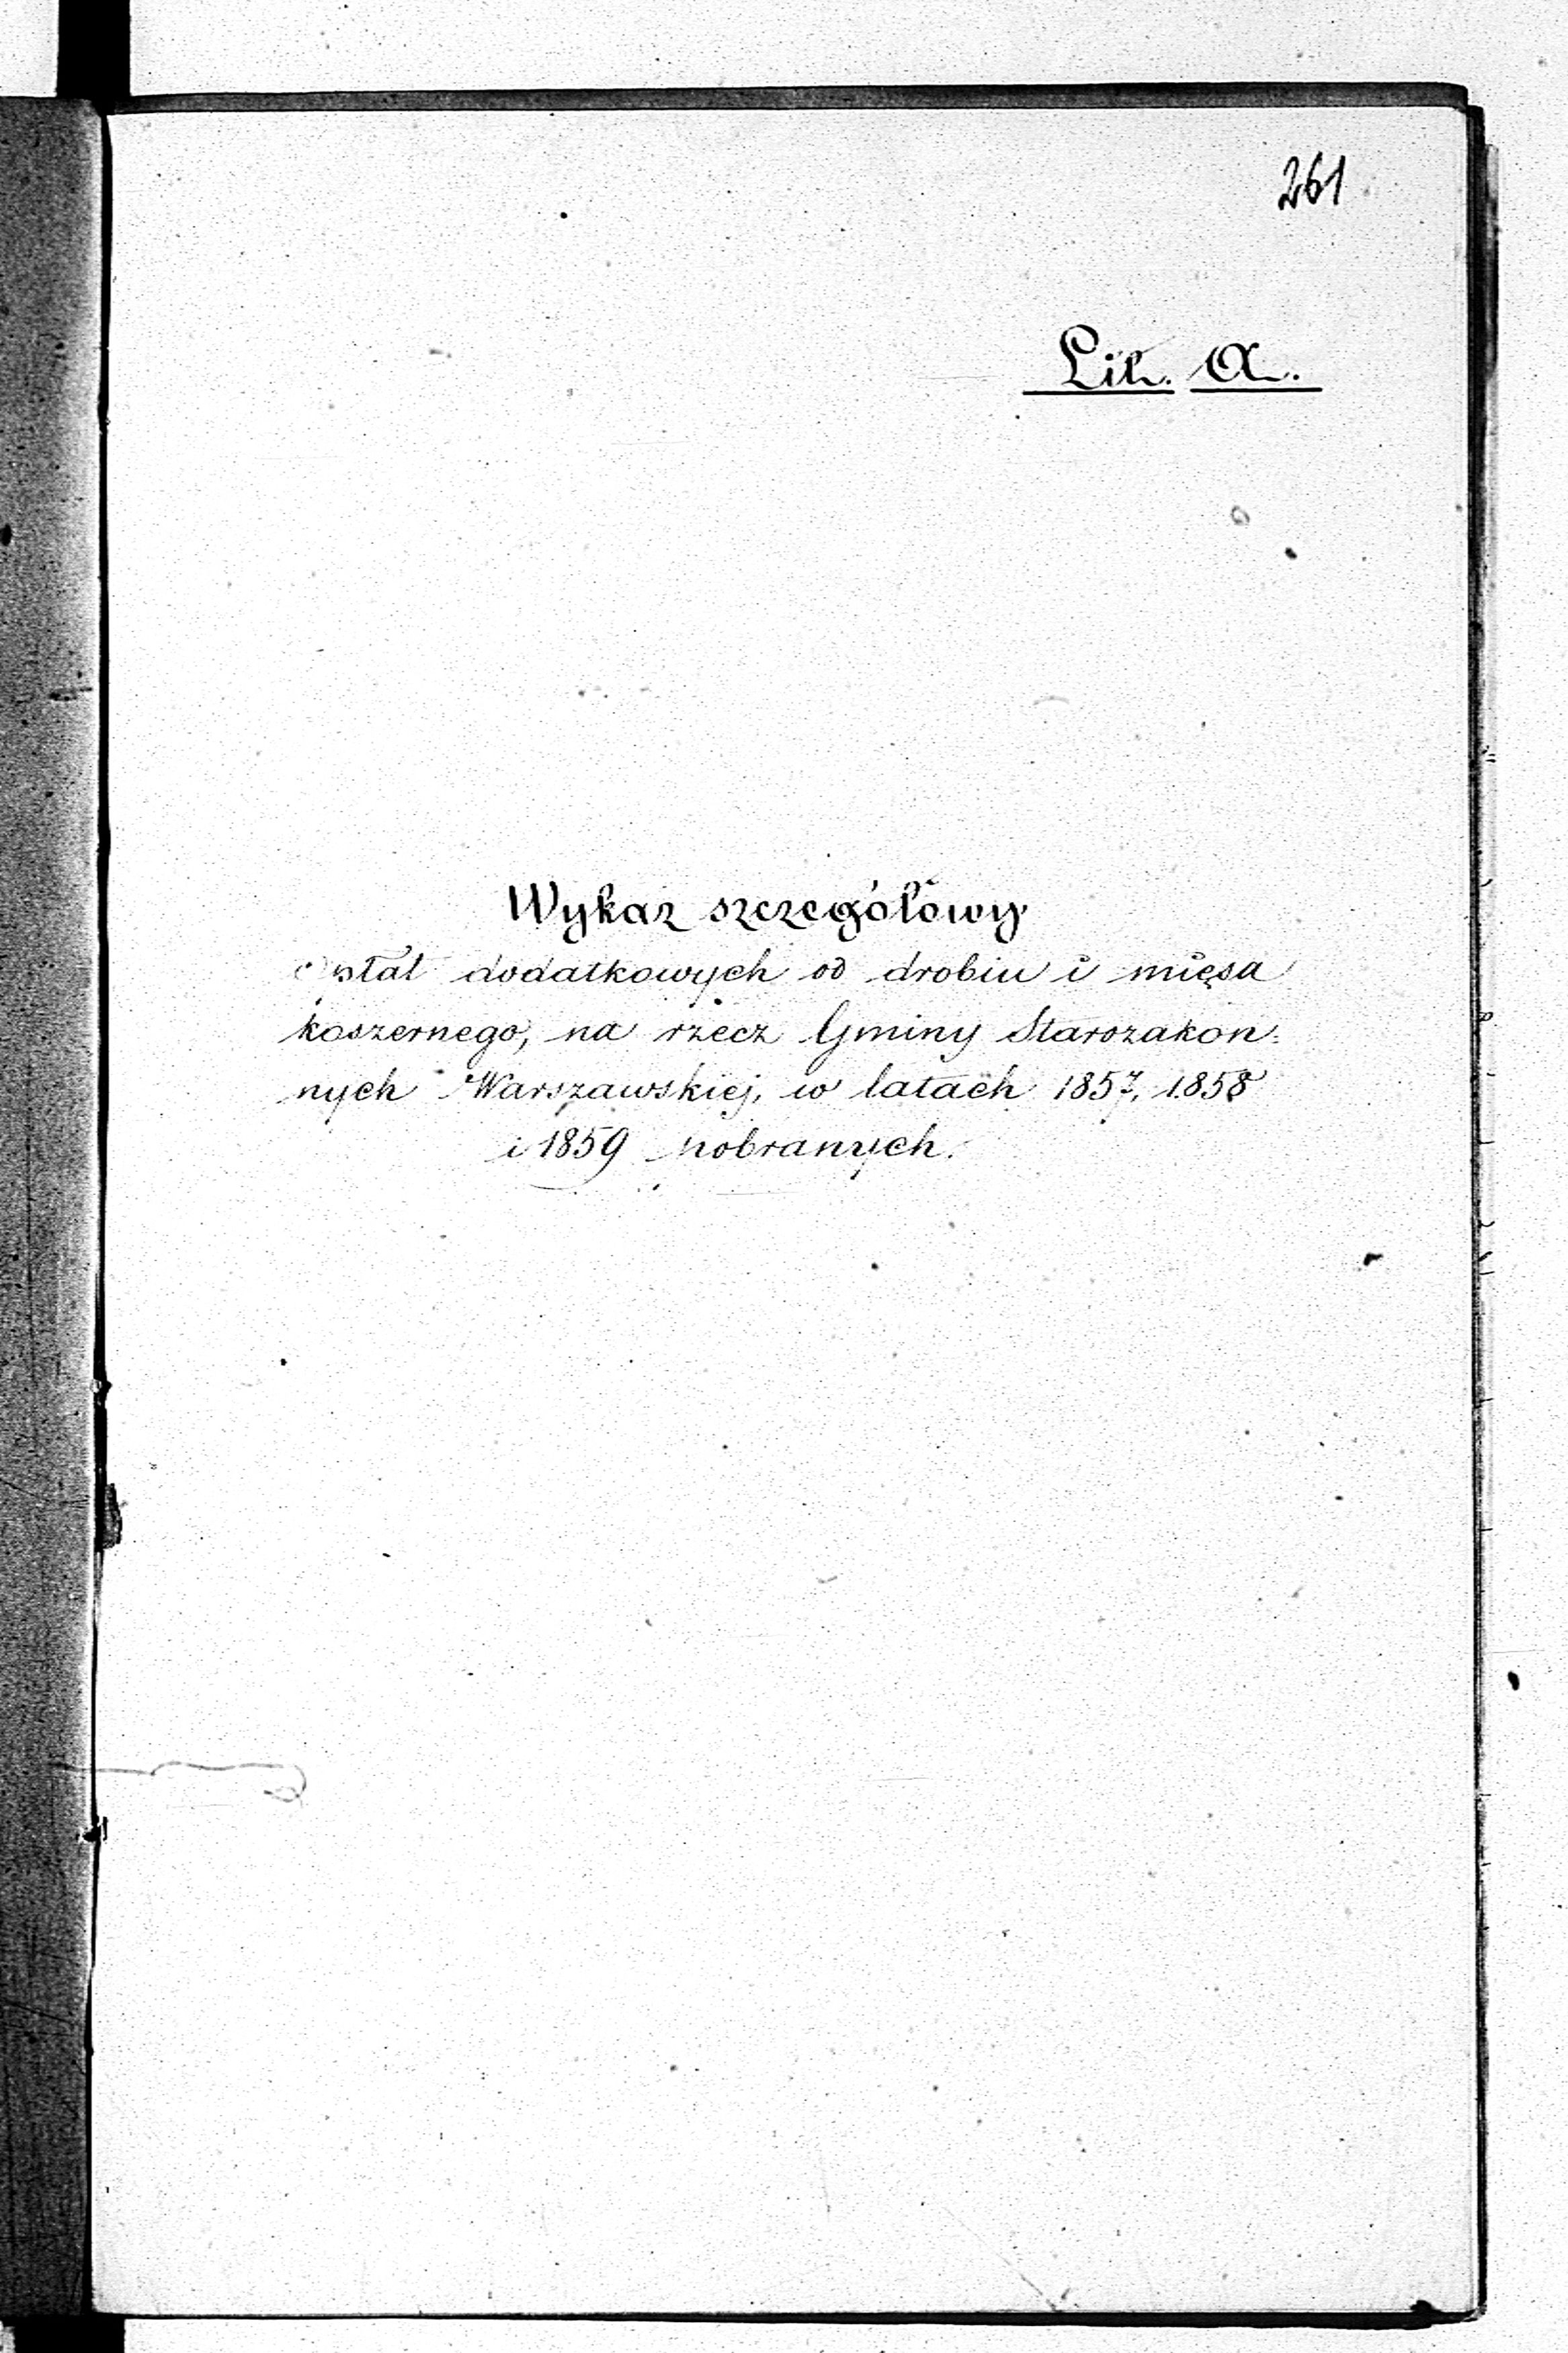 261
Lit. A.
Wykaz szczegółowy
opłat dodatkowych od drobiu i mięsa
koszernego, na rzecz Gminy Starozakon:
nych Warszawskiej, w latach 1857, 1858
i 1859 pobranych.